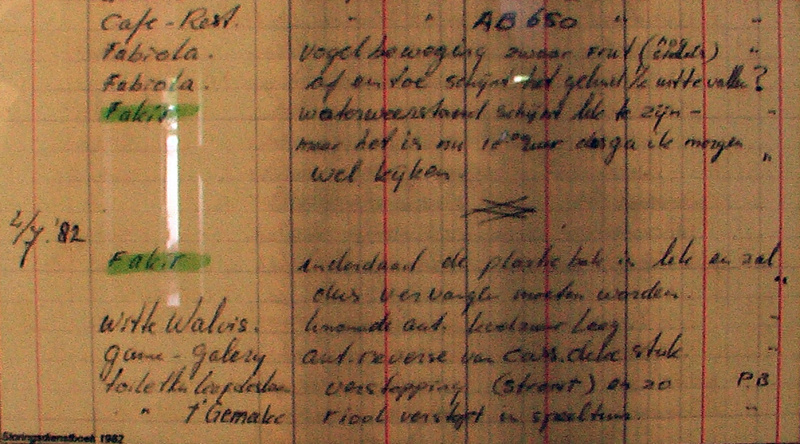 Cafe-Rest. " " AB 650 " "
Fabiola. vogelbeweging zwaar "
Fabiola. af en toe schijnt het geluid te vallen?
Fakir waterweerstand schijnt lek te zijn - "
maar het is nu uur dus ga ik morgen "
wel kijken.
2/7 '82
Fakir inderdaad de plastic bak is lek en zal "
dus vervangen moeten worden.
witte Walvis. aut. Leeg "
game-galery aut. reverse van cass. deck stuk. "
verstopping (stront) en zo PB
" 't Gemakje riool verstopt in speeltuin. "
Storingsdienstboek 1982